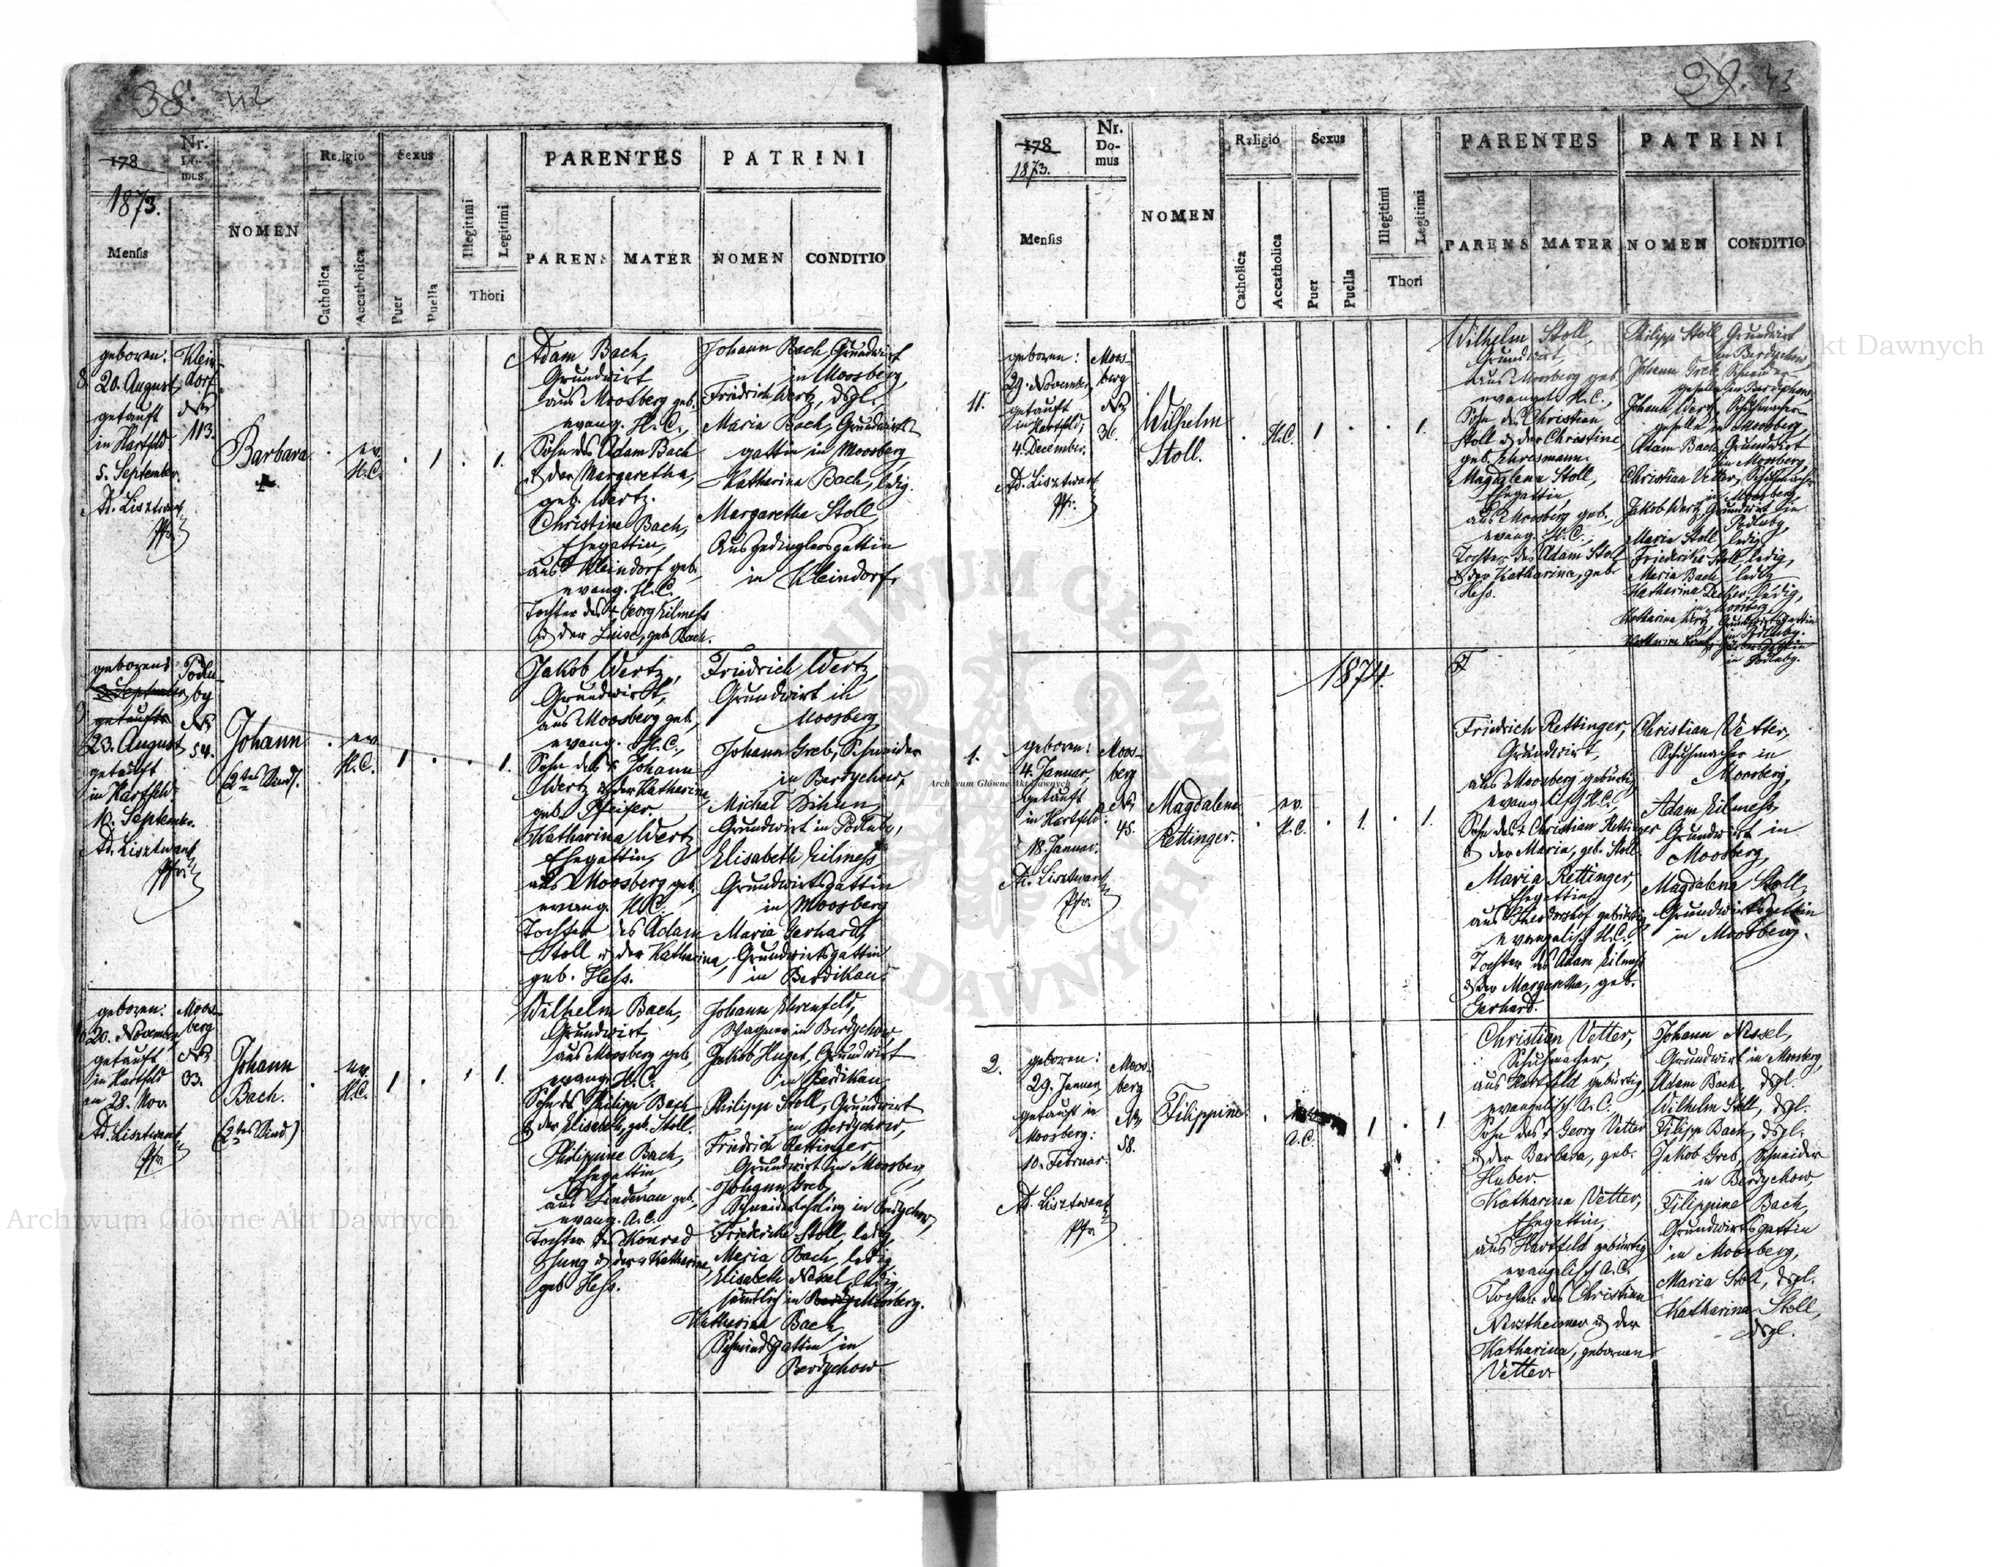 38. 42
178
1873.
Mensis
Nr. Do- mus
NOMEN
Religio
Catholica
Accatholica
Sexus
Puer
Puella
Illegitimi
Legitimi
Thori
PARENTES
PARENS
MATER
PATRINI
NOMEN
CONDITIO
8.
geboren:
20. August,
getauft
in Hartfeld
5. September.
Ad. Lisztwan
Pfr.
Klein-
dorf
No
113.
Barbara
ev.
H.C.
1
1.
Adam Bach,
Grundwirt
aus Moosberg geb.
evang. H.C.,
Sohn des Adam Bach
u. der Margaretha,
geb. Wertz.
Christine Bach,
Ehegattin,
aus Kleindorf geb.
evang. H.C.
Tochter des Georg Eilmess
u. der Luise, geb. Bach.
Johann Bach, Grundwirt
in Moosberg,
Friedrich Wertz, dsgl.
Maria Bach, Grundwirts-
gattin in Moosberg
Katharina Bach, ledig.
Margaretha Stoll,
Ausgedinglersgattin
in Kleindorf.
9.
geboren:
getauft
23. August
getauft
in Hartfeld
10. September.
Ad. Lisztwan
Pfr.
Podlu-
by
No
54.
Johann
(2tes Kind).
ev.
H.C.
1
1.
Jakob Wertz,
Grundwirt,
aus Moosberg geb.,
evang. H.C.,
Sohn des Johann
Wertz u. der Katharina,
geb. Pfeifer.
Katharina Wertz
Ehegattin,
aus Moosberg geb.
evang. H.C.
Tochter des Adam
Stoll u. der Katharina,
geb. Hess.
Friedrich Wertz
Grundwirt in
Moosberg,
Johann Greb, Schneider
in Berdychow,
Michal
Grundwirt in Podluby,
Elisabeth Eilmess
Grundwirtsgattin
in Moosberg
Maria Gerhard,
Grundwirtsgattin
in Berdikau
geboren:
20. November
getauft
in Hartfeld
am 28. Nov.
Ad. Lisztwan
Pfr.
Moos-
berg
No
33.
Johann
Bach.
(2tes Kind)
ev.
H.C.
1
1.
Wilhelm Bach,
Grundwirt
aus Moosberg geb.,
evang. H.C.
Sohn des Philipp Bach
u. der Elisabeth, geb. Stoll.
Philippine Bach,
Ehegattin
aus Lindenau geb.
evang. A.C.
Tochter des Konrad
u. der Katharina,
geb. Hess.
Johann Ehrenfeld,
Wagner in Berdychow
Jakob Huget, Grundwirt
in Berdikau
Philipp Stoll, Grundwirt
in Berdychow,
Friedrich Rettinger,
Grundwirt in Moosberg,
Johann Greb,
Schneiderlehrling in Berdychow,
Friederike Stoll, ledig,
Maria Bach, ledig
Elisabeth Nessel, ledig,
sämtlich in Moosberg.
Katharina Bach,
Schmidsgattin in
Berdychow
39. 43
178
1873.
Mensis
Nr. Do- mus
NOMEN
Religio
Catholica
Accatholica
Sexus
Puer
Puella
Illegitimi
Legitimi
Thori
PARENTES
PARENS
MATER
PATRINI
NOMEN
CONDITIO
11.
geboren:
29. November,
getauft
in Hartfeld,
4. December.
Ad. Lisztwan
Pfr.
Moos-
berg
No
36.
Wilhelm
Stoll.
H.C.
1
1.
Wilhelm Stoll
Grundwirt,
aus Moosberg geb.
evangel. H.C.,
Sohn des Christian
Stoll u. der Christine,
geb. Ehresmann.
Magdalena Stoll,
Ehegattin,
aus Moosberg geb.,
evang. H.C.,
Tochter des Adam Stoll
u. der Katharina, geb.
Hess.
Philipp Stoll, Grundwirt
in Berdychow,
Johann Greb, Schneider-
geselle in Berdychow
Johann Wertz, Schuhmacher-
geselle in Moosberg,
Adam Bach, Grundwirt
in Moosberg,
Christian Vetter, Schuhmacher
in Moosberg
Jakob Wertz, Grundwirt in
Podluby,
Maria Stoll, ledig
Friederike Stoll, ledig,
Maria Bach, ledig
Katharina ledig,
in Moosberg
Katharina Wertz, Grundwirtsgattin
in Podluby.
in Podluby.
1874.
1.
geboren:
4. Januar,
getauft
in Hartfeld:
18. Januar.
Ad. Lisztwan
Pfr.
Moos-
berg
No
45.
Magdalena
Rettinger.
ev.
H.C.
1.
1.
Friedrich Rettinger,
Grundwirt,
aus Moosberg gebürtig,
evangelisch H.C.
Sohn des Christian Rettinger
u. der Maria, geb. Stoll.
Maria Rettinger,
Ehegattin,
gebürtig,
evangelisch H.C.,
Tochter des Adam Eilmess
u. der Margaretha, geb.
Gerhard.
Christian Vetter,
Schuhmacher in
Moosberg,
Adam Eilmess,
Grundwirt in
Moosberg,
Magdalena Stoll,
Grundwirtsgattin
in Moosberg.
2.
geboren:
29. Januar,
getauft in
Moosberg:
10. Februar.
Ad. Lisztwan
Pfr.
Moos-
berg
No
58.
Filippine
A.C.
1
1
Christian Vetter,
Schuhmacher,
aus Hartfeld gebürtig,
evangelisch A.C.
Sohn des Georg Vetter
u. der Barbara, geb.
Huber.
Katharina Vetter,
Ehegattin,
aus Hartfeld gebürtig,
evangelisch A.C.
Tochter des Christian
u. der
Katharina, gebornen
Vetter
Johann Nessel,
Grundwirt in Moosberg,
Adam Bach, dsgl.
Wilhelm Stoll, dsgl.
Filipp Bach, dsgl.
Jakob Greb, Schneider
in Berdychow
Filippine Bach,
Grundwirtsgattin
in Moosberg,
Maria Stoll, dsgl.
Katharina Stoll,
dsgl.
Archiwum Główne Akt Dawnych
Archiwum Główne Akt Dawnych
Archiwum Główne Akt Dawnych
ARCHIWUM GŁÓWNE AKT DAWNYCH